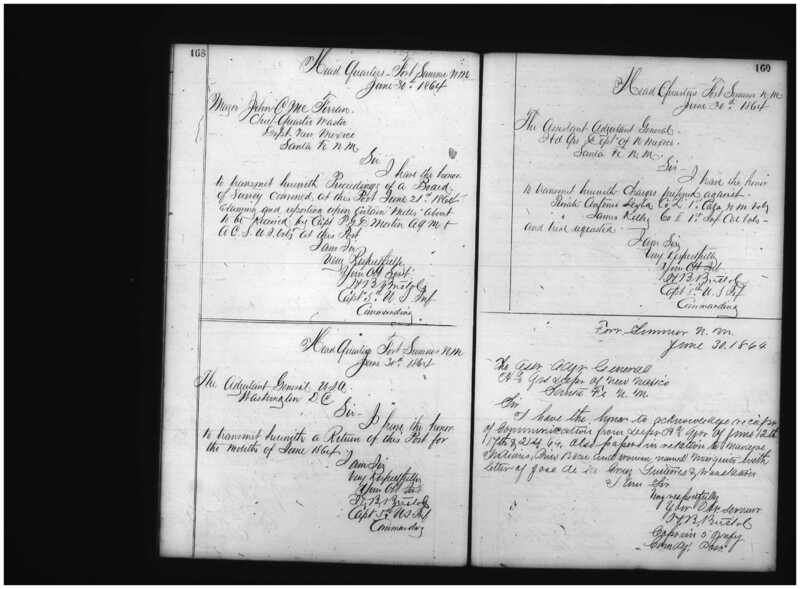 168
Head Quarters Fort Sumner N.M.
June 30th 1864
Major John C. McFerran
Chief Quarter Master
Dept New Mexico
Santa Fe N.M.
Sir I have the honor
to transmit herewith Proceedings of a Board
of Survey Convened at this Post June 21st 1864
examining and reporting upon Certain Mules about
to be received by Capt P.G.D. Morton A.Q.M. &
A.C.S. U.S. Vols at this Post
I am Sir
Very Respectfully
Your Obt Servt
H B Bristol
Capt 5th U.S. Inf
Commanding
Head Quarters Fort Sumner N.M.
June 30th 1864
The Adjutant General USA
Washington D.C.
Sir I have the honor
to transmit herewith a Return of this Post for
the month of June 1864
I am Sir
Very Respectfully
Your Obt Svt
H B Bristol
Capt 5th U.S. Inf
Commanding
169
Head Quarters Fort Sumner N.M.
June 30th 1864
The Assistant Adjutant General
Hd Qrs Dept of N Mexico
Santa Fe N.M.
Sir I have the honor
to transmit herewith Charges prefered against
Co 1st Cav N.M. Vols
James Kelly Co E 1st Inf Cal Vols
and
I am Sir
Very Respectfully
Your Obt Svt
H B Bristol
Capt 5th U.S. Inf
Commanding
Fort Sumner N.M.
June 30. 1864
The Asst Adjt General
Hd Qrs Dept of New Mexico
Santa Fe N.M.
Sir
I have the honor to acknowledge receipt
of Communication from Dept Hd Qrs of June 12th
17th & 24 64, also papers in relation to Navajoe
Indians, and woman named Marguita with
letter of Jose de la Cruz
I am Sir
Very respectfully
Your Obt Servant
H B Bristol
Captain 5 Infty
Comdg Post